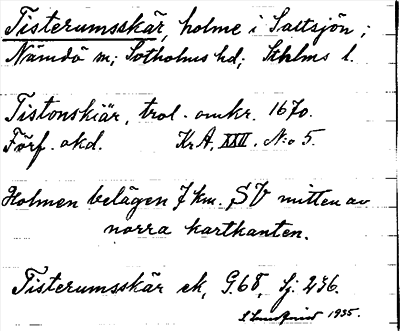 Tisterumsskär, holme i Saltsjön;
Nämdö sn; Sotholms hd; Sthlms l.
Tistonskiär, trol. omkr. 1670.
Förf. okd. KrA, XXII, N:o 5.
Holmen belägen 7 km. SV mitten av
norra kartkanten.
Tisterumsskär ek, G.68, Sj: 236.
1935.